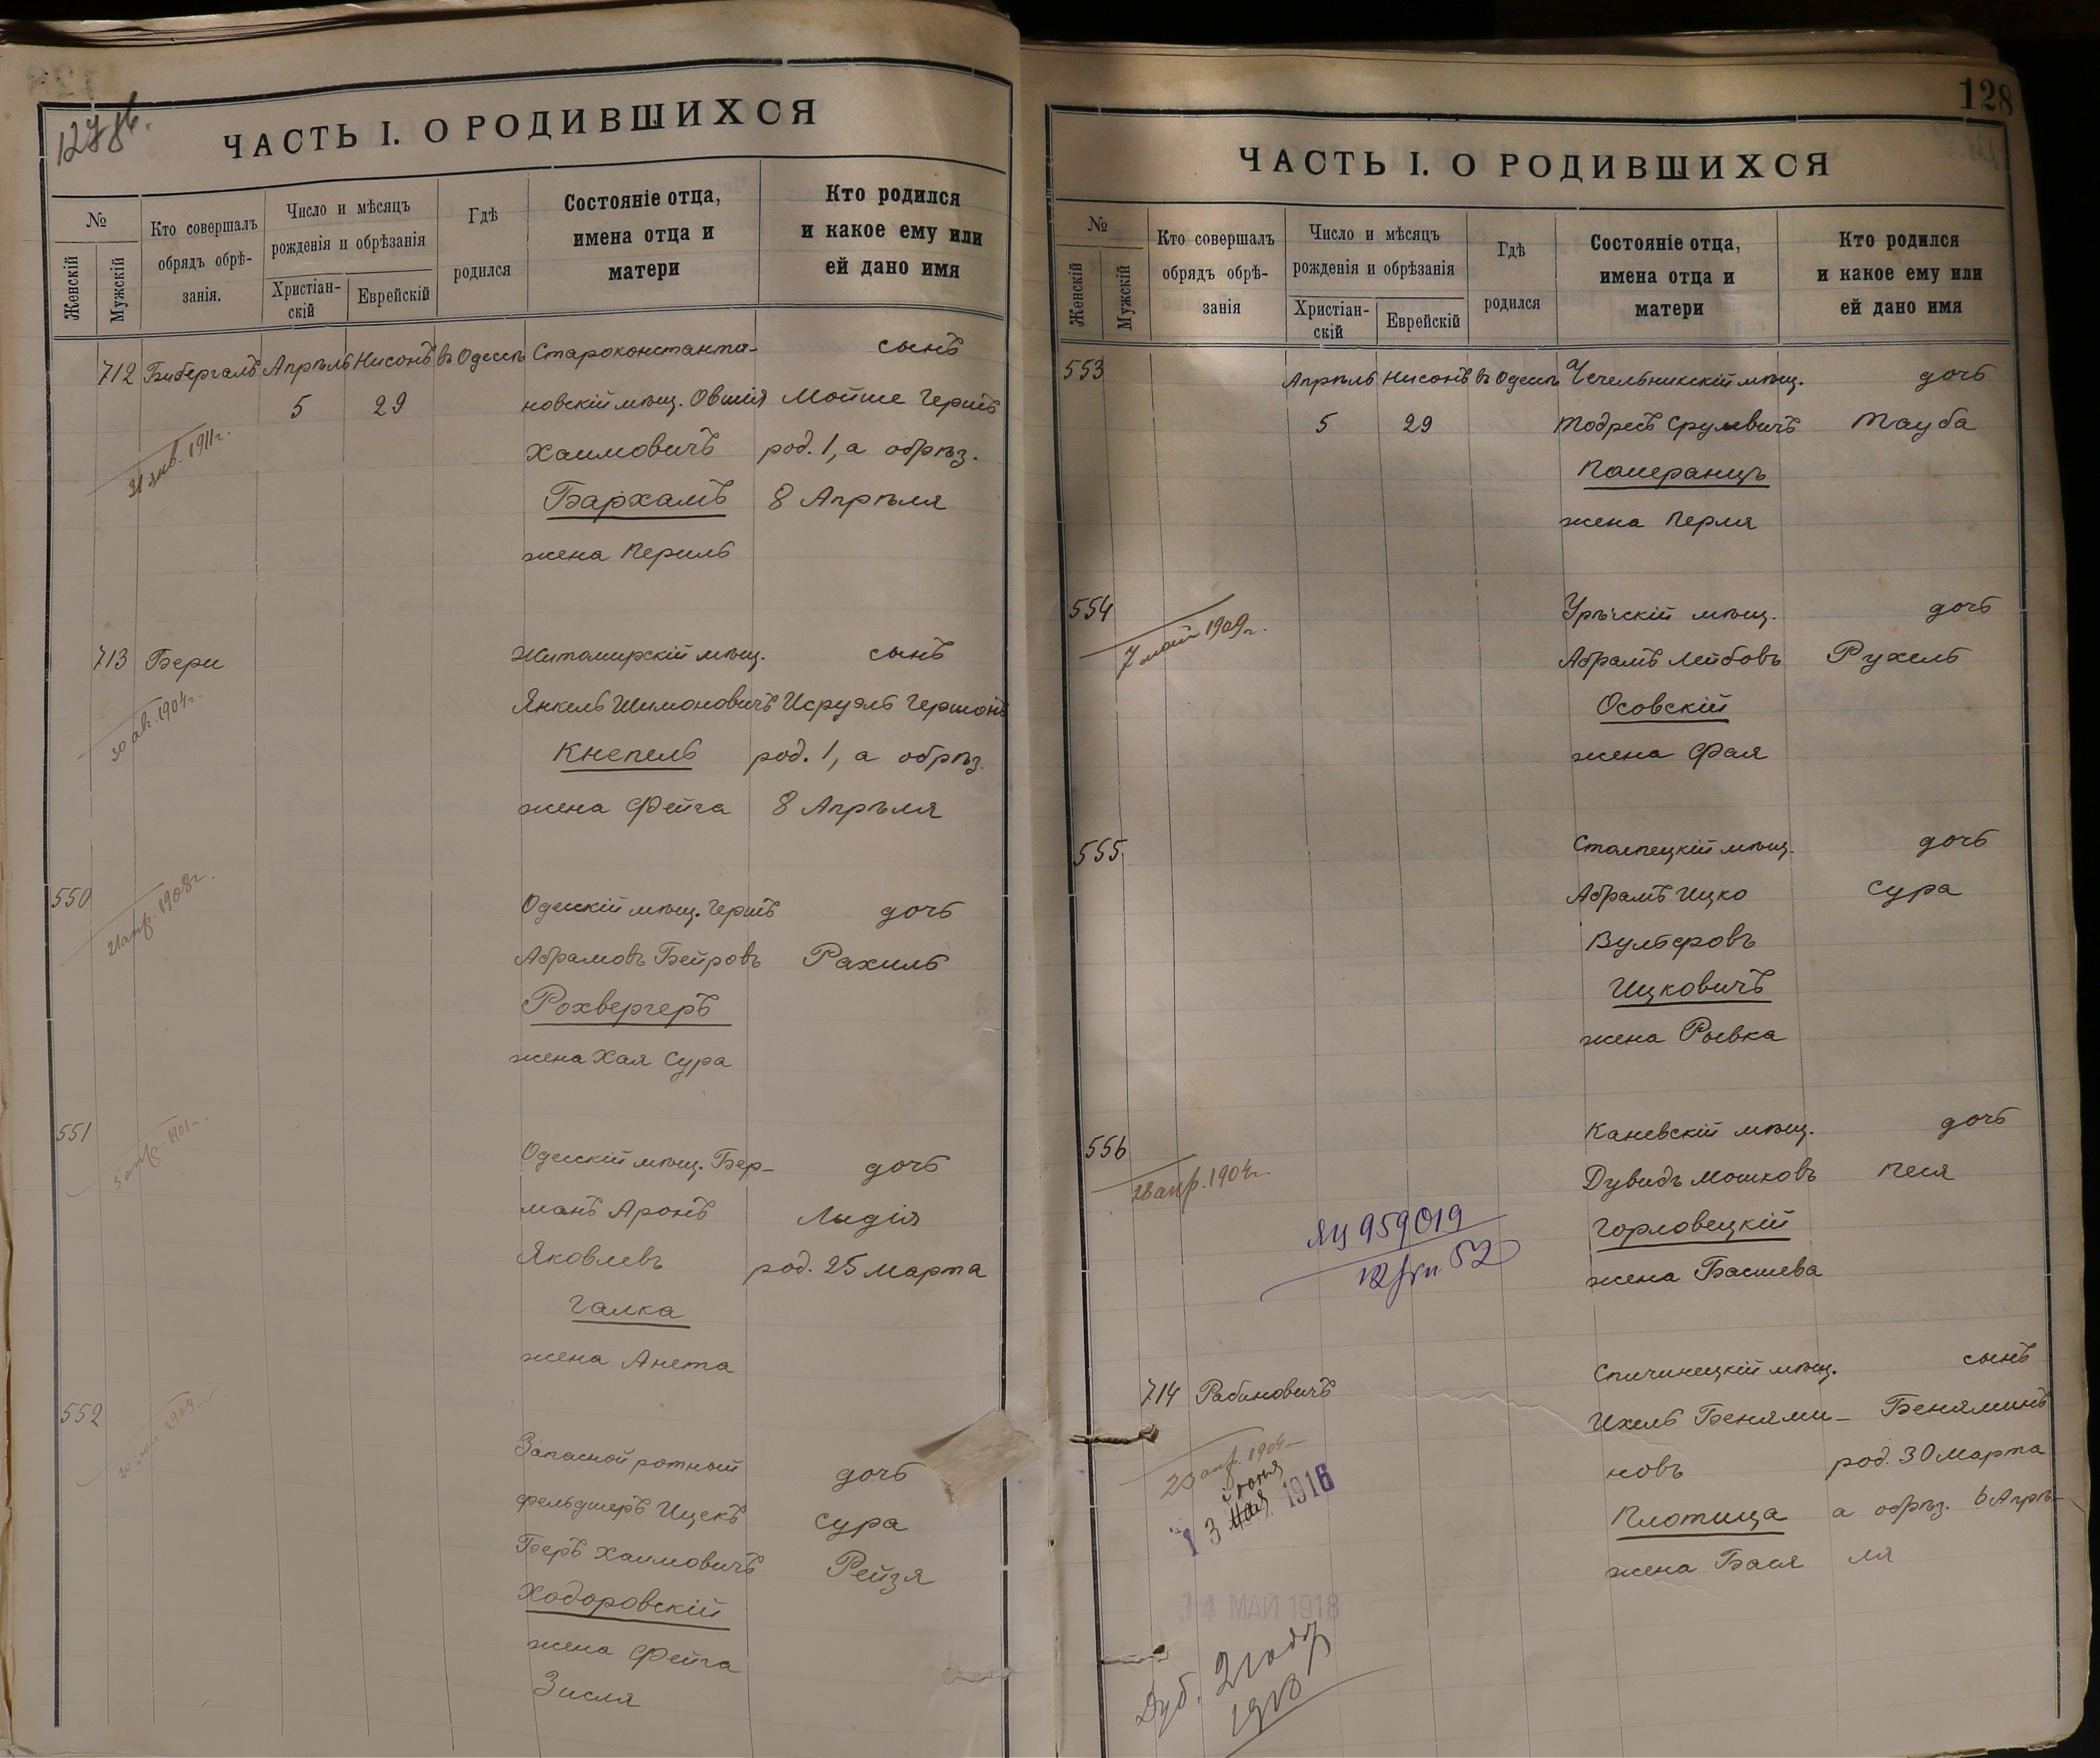 ЧАСТЬ I. О РОДИВШИХСЯ
№
Женскій
Мужскій
Кто совершалъ
обрядъ обрѣ-
занія.
Число и мѣсяцъ
рожденія и обрѣзанія
Христіан-
скій
Еврейскій
Гдѣ
родился
Состояніе отца,
имена отца и
матери
Кто родился
и какое ему или
ей дано имя
712 Бибергалъ Апрѣль Нисонъ въ Одессѣ Староконстанти- сынъ
5 29 новскій мѣщ. Овшія Мойше Гершъ
31 янв. 1911г.
Хаимовичъ род. 1, а обрѣз.
Бархамъ 8 Апрѣля
жена Перль
713 Бери Житомирскій мѣщ. сынъ
30 ав. 1904г.
Янкель Шимоновичъ Исруэль Гершонъ
Кнепель род. 1, а обрѣз.
жена Фейга 8 Апрѣля
550 Одесскій мѣщ. Гершъ дочь
21 апр. 1908г.
Абрамовъ Бейровъ Рахиль
Рохвергеръ
жена Хая Сура
551 Одесскій мѣщ. Бер- дочь
1901г.
манъ Аронъ Лидія
Яковлевъ род. 25 марта
Галка
жена Анета
552 Запасной ротный дочь
фельдшеръ Ицекъ Сура
Беръ Хаимовичъ Рейзя
Ходоровскій
жена Фейга
Зисля
128
ЧАСТЬ I. О РОДИВШИХСЯ
№
Женскій
Мужскій
Кто совершалъ
обрядъ обрѣ-
занія
Число и мѣсяцъ
рожденія и обрѣзанія
Христіан-
скій
Еврейскій
Гдѣ
родился
Состояніе отца,
имена отца и
матери
Кто родился
и какое ему или
ей дано имя
553 Апрѣль Нисонъ въ Одессѣ Чечельникскій мѣщ. дочь
5 29 Тодресъ Срулевичъ Тауба
Памеранцъ
жена Перля
554 мѣщ. дочь
7 мая 1909г.
Абрамъ Лейбовъ Рухель
Осовскій
жена Фая
555 Столпецкій мѣщ. дочь
Абрамъ Ицко Сура
Вульфовъ
Ицковичъ
жена Рывка
556 Каневскій мѣщ. дочь
28 апр. 1904г.
Дувидъ Мошковъ Песя
ЯЦ 959019
52
Горловецкій
жена Басшева
714 Рабиновичъ Спичинецкій мѣщ. сынъ
Ихель Бенями- Беняминъ
20 апр. 1904
новъ род. 30 марта
13 Мая 1916
Іюня
Плотица а обрѣз. 6 Апрѣ-
жена Бася ля
14 МАЙ 1918
Дуб.
1918